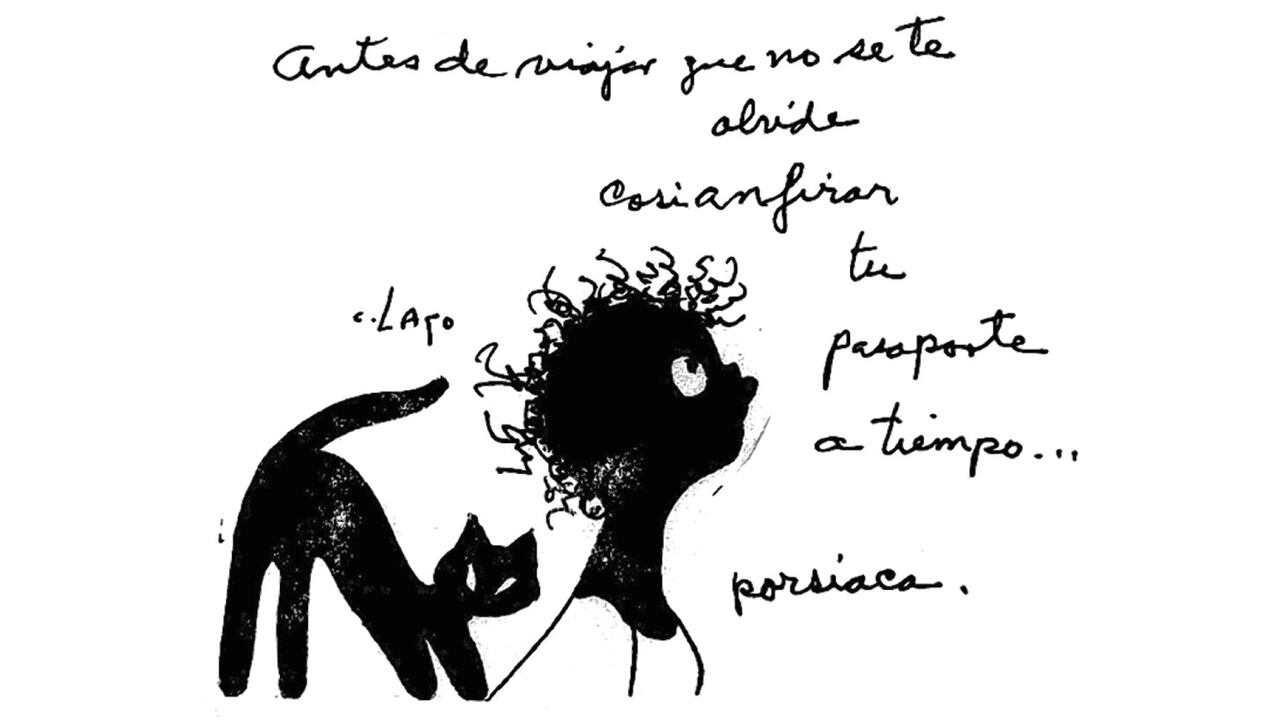 Antes de viajar que no se te
olvide
cosianfirar
tu
pasaporte
a tiempo...
porsiaca.
c. LAGO